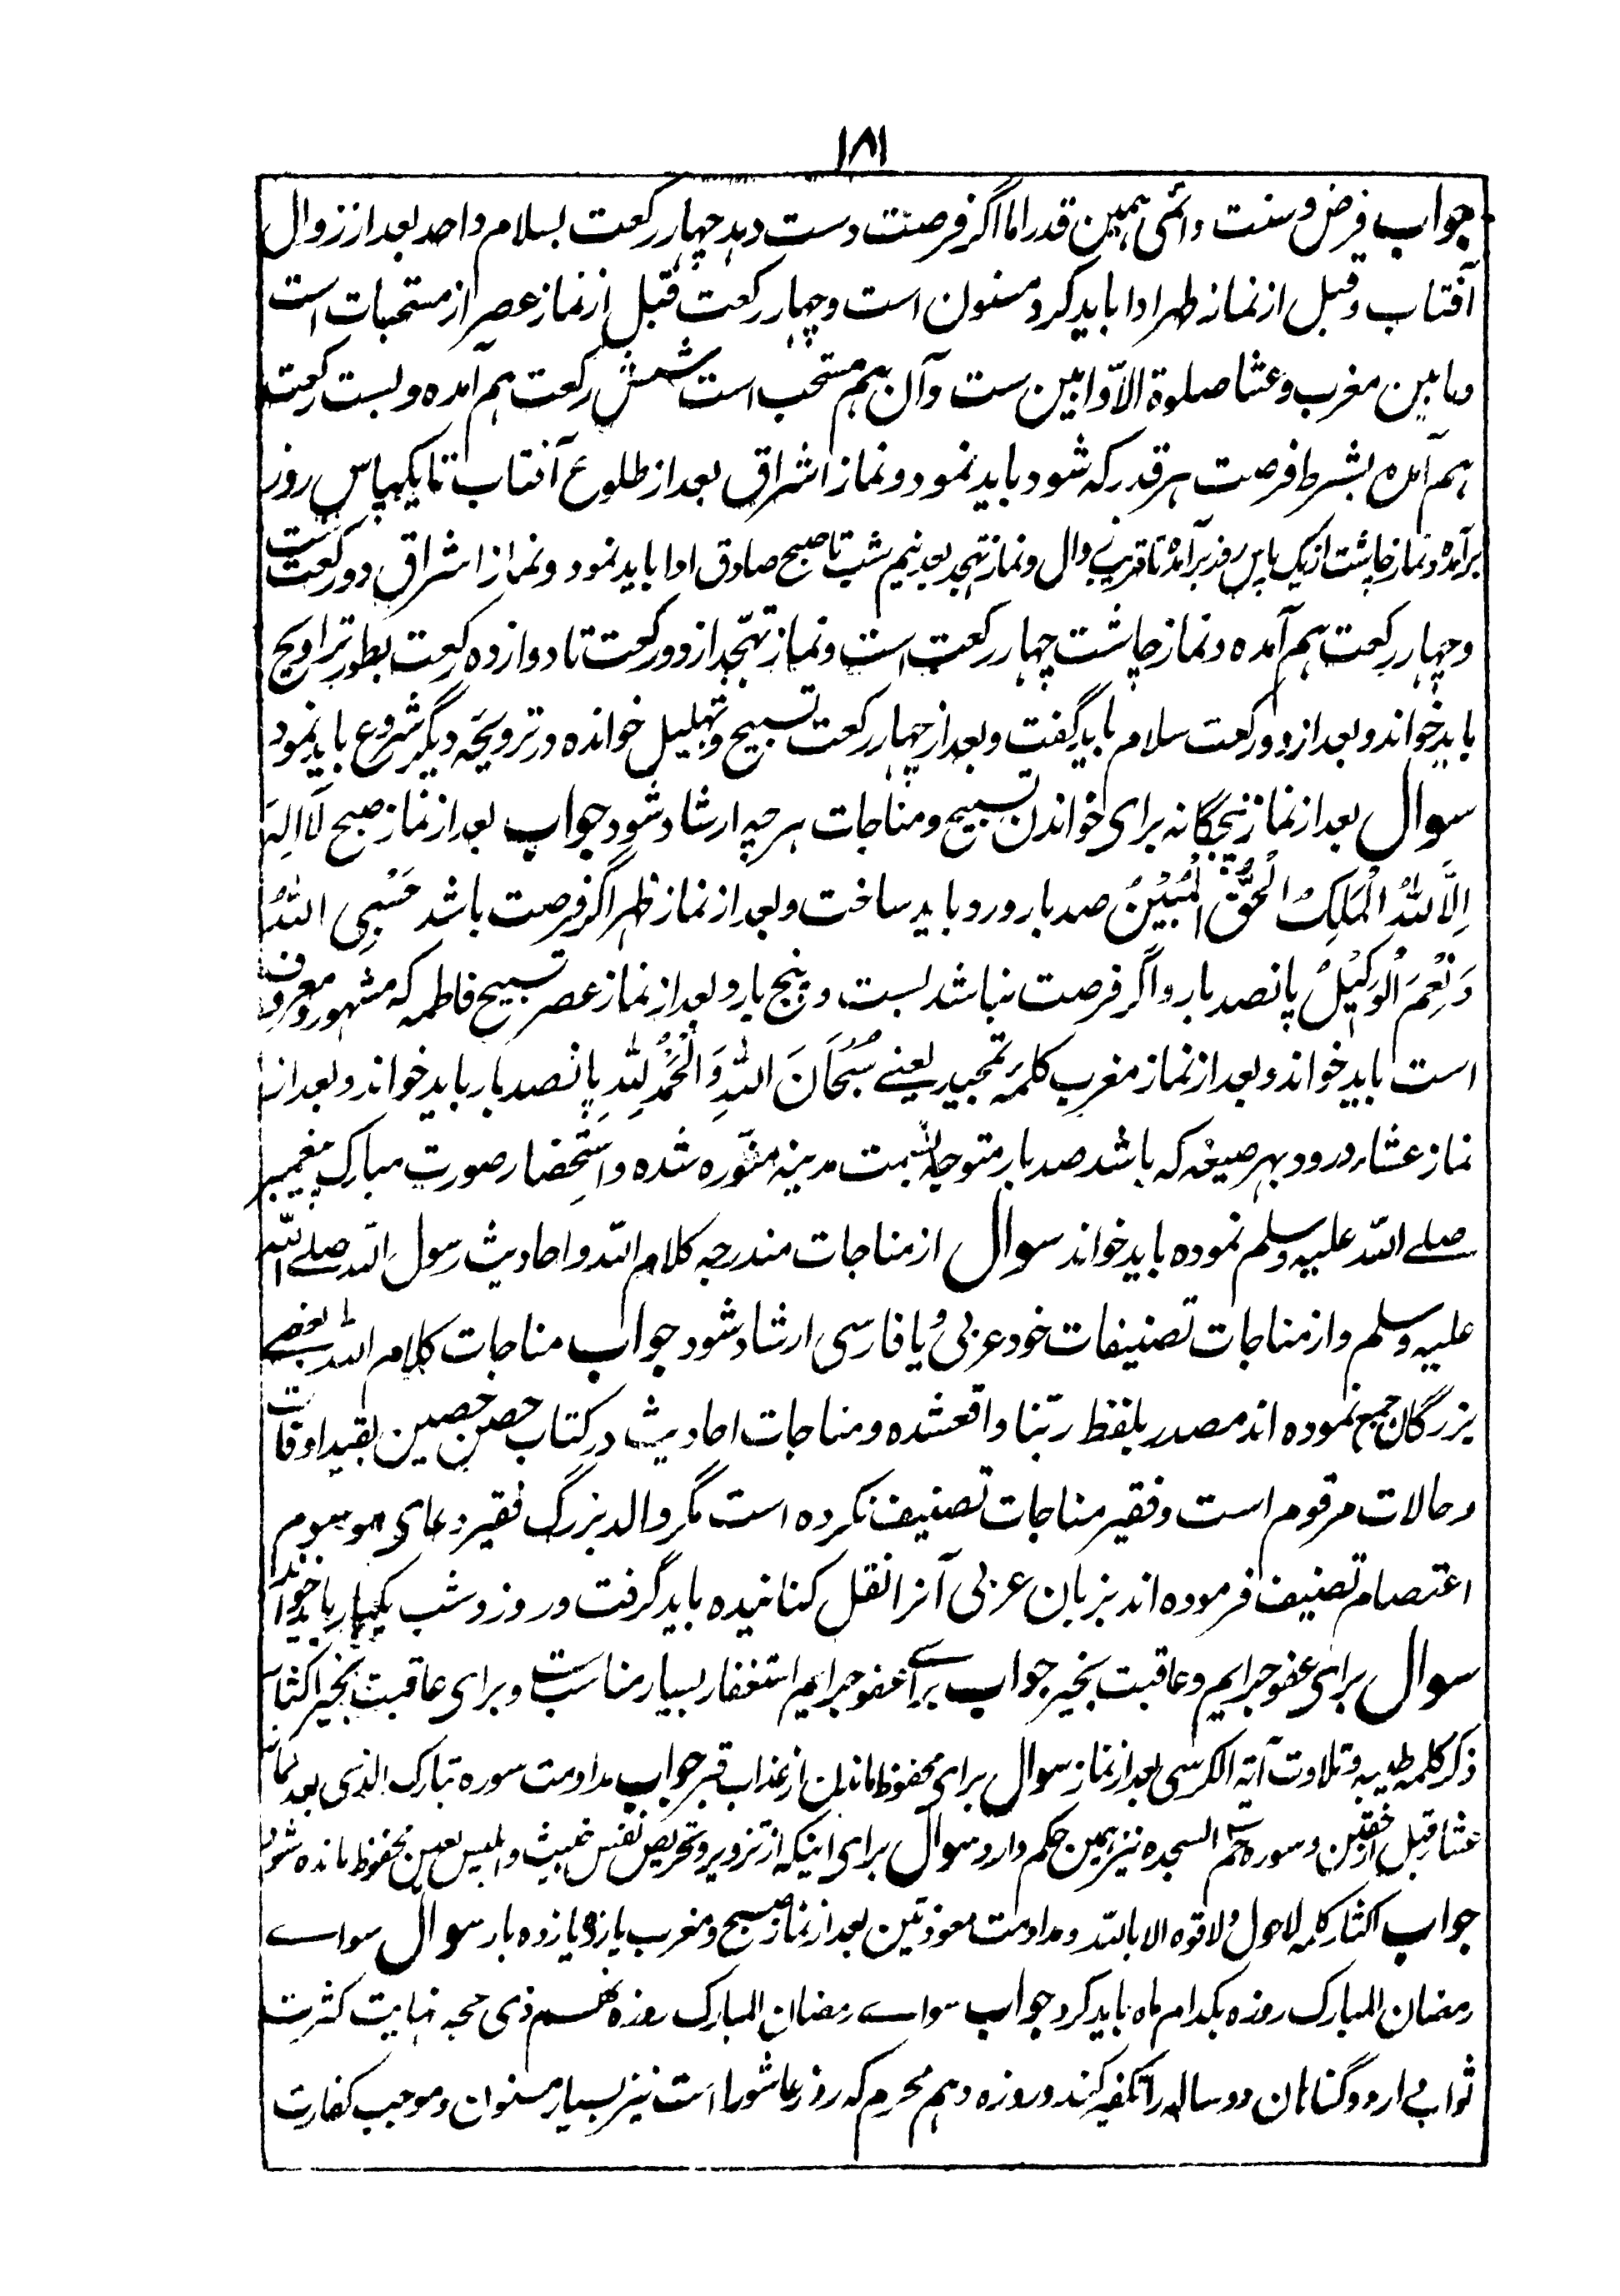 ١٨١
جواب فرض و سنت دائمی همین قدر اما اگر فرصت دست دهد چهار رکعت بسلام واحد بعد از زوال
آفتاب و قبل از نماز ظهر ادا باید کرد مسنون است و چهار رکعت قبل از نماز عصر از مستحبات است
و مابین مغرب و عشا صلوة الاوّابین ست و آن هم مستحب است شش رکعت هم آمده و بست رکعت
هم آمده بشرط فرصت هر قدر که شود باید نمود و نماز اشراق بعد از طلوع آفتاب تا یکپاس روز
برآمده و نماز چاشت از یک پاس روز برآمده تا قریب زوال و نماز تهجد بعد نیم شب تا صبح صادق ادا باید نمود و نماز اشراق دو رکعت ست
و چهار رکعت هم آمده و نماز چاشت چهار رکعت است و نماز تهجّد از دو رکعت تا دوازده رکعت بطور تراویح
باید خواند و بعد از دو رکعت سلام باید گفت و بعد از چهار رکعت تسبیح و تهلیل خوانده در ترویحه دیگر شروع باید نمود
سوال بعد از نماز پنجگانه برای خواندن تسبیح و مناجات هر چه ارشاد شود جواب بعد از نماز صبح لَا اِلٰهَ
اِلَّا اللهُ الْمَلِكُ الْحَقُّ الْمُبِيْنُ صد بار ورد باید ساخت و بعد از نماز ظهر اگر فرصت باشد حَسْبِی اللهُ
وَنِعْمَ الْوَکِیْلُ پانصد بار و اگر فرصت نباشد بست و پنج بار و بعد از نماز عصر تسبیح فاطمه که مشهور و معروف
است باید خواند و بعد از نماز مغرب کلمهٔ تمجید یعنے سُبْحَانَ اللهِ وَالْحَمْدُ لِلهِ پانصد بار باید خواند و بعد از
نماز عشاء درود بهر صیغه که باشد صد بار متوجه بسمت مدینه منوّره شده و استحضار صورت مبارک پیغمبر
صلے الله علیه وسلم نموده باید خواند سوال از مناجات مندرجه کلام الله و احادیث رسول الله صلے الله
علیه وسلم و از مناجات تصنیفات خود عربی و یا فارسی ارشاد شود جواب مناجات کلام الله بعضے
بزرگان جمع نموده اند مصدر بلفظ ربّنا واقعشده و مناجات احادیث در کتاب حصن حصین بقید اوقات
و حالات مرقوم است و فقیر مناجات تصنیف نکرده است مگر والد بزرگ فقیر دعای موسوم
اعتصام تصنیف فرموده اند بزبان عربی آنرا نقل کنانیده باید گرفت و روز و شب یکبار باید خواند
سوال برای عفو جرایم و عاقبت بخیر جواب برائے عفو جرایم استغفار بسیار مناسبت و برای عاقبت بخیر اکثار
ذکر کلمه طیبه و تلاوت آیة الکرسی بعد از نماز سوال برای محفوظ ماندن از عذاب قبر جواب مداومت سوره تبارک الذی بعد نماز
عشا قبل از خفتن و سوره حم السجده نیز همین حکم دارد سوال برای اینکه از تزویر و تحریص نفس خبیث و ابلیس لعین محفوظ مانده شود
جواب اکثار کلمه لاحول و لا قوه الا بالله و مداومت معوذتین بعد از نماز صبح و مغرب یازده یازده بار سوال سواے
رمضان المبارک روزه بکدام ماه باید کرد جواب سواے رمضان المبارک روزه نهم ذی حجه نهایت کثرت
ثواب دارد و گناهان دو ساله را تکفیر کند و روزه دهم محرم که روز عاشورا است نیز بسیار مسنون و موجب کفارت